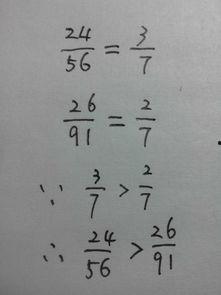 24/56 = 3/7
26/91 = 2/7
∵ 3/7 > 2/7
∴ 24/56 > 26/91